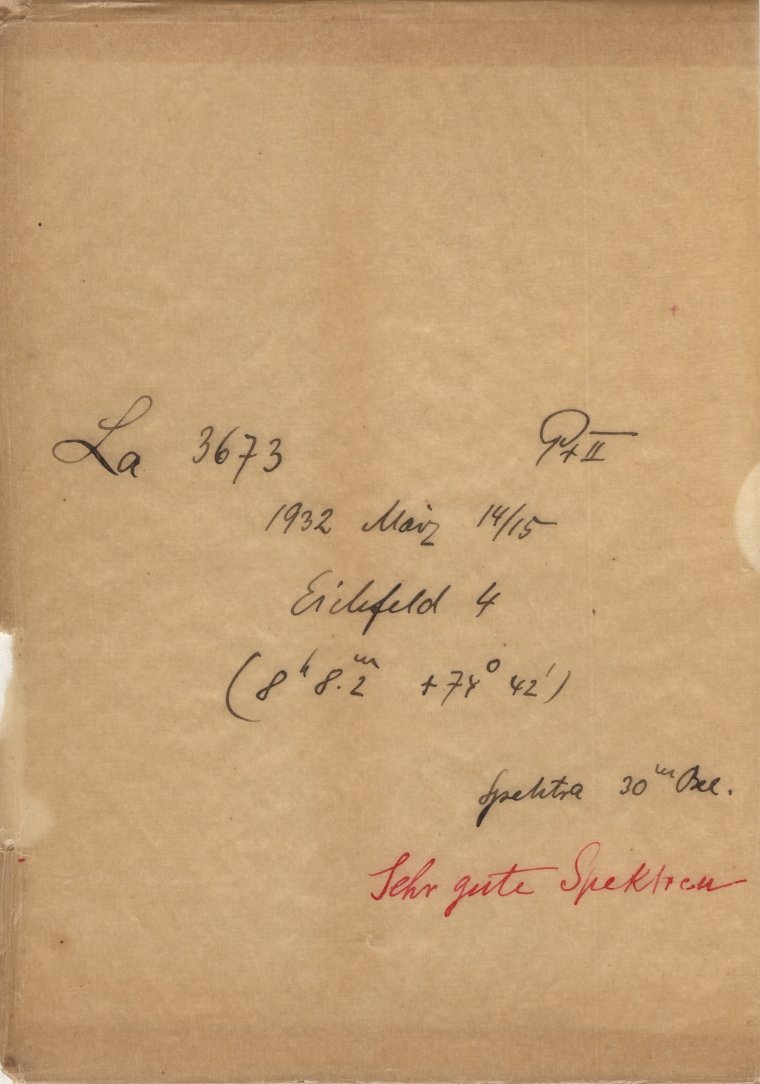 La 3673 P+II
1932 März 14/15
Eichfeld 4
(8ʰ 8.2ᵐ +74° 42')
Spektra 30ᵐ Bel.
Sehr gute Spektren